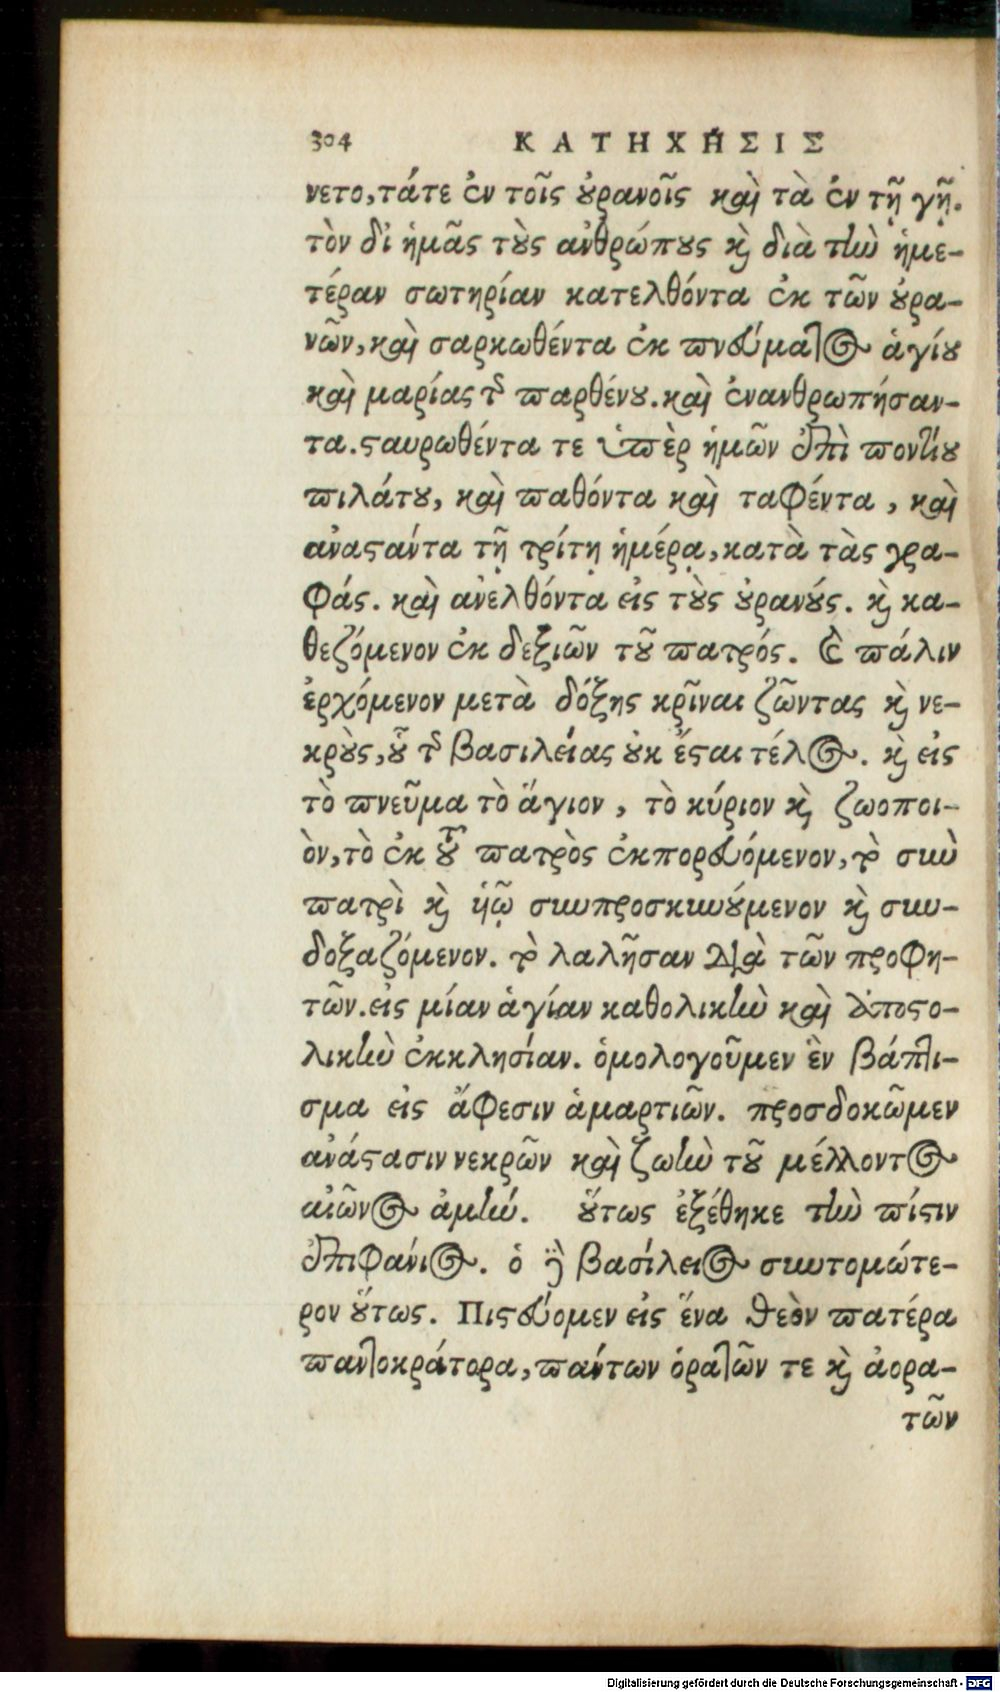 304 ΚΑΤΗΧΗΣΙΣ
νετο, τάτε ἐν τοῖς οὐρανοῖς καὶ τὰ ἐν τῇ γῇ.
τὸν δἰ ἡμᾶς τοὺς ἀνθρώπους καὶ διὰ τὴν ἡμε-
τέραν σωτηρίαν κατελθόντα ἐκ τῶν οὐρα-
νῶν, καὶ σαρκωθέντα ἐκ πνεύματος ἁγίου
καὶ μαρίας τῆς παρθένου. καὶ ἐνανθρωπήσαν-
τα. σταυρωθέντα τε ὑπὲρ ἡμῶν ἐπὶ ποντίου
πιλάτου, καὶ παθόντα καὶ ταφέντα, καὶ
ἀναστάντα τῇ τρίτῃ ἡμέρᾳ, κατὰ τὰς γρα-
φάς. καὶ ἀνελθόντα εἰς τοὺς οὐρανούς. καὶ κα-
θεζόμενον ἐκ δεξιῶν τοῦ πατρός. καὶ πάλιν
ἐρχόμενον μετὰ δόξης κρῖναι ζῶντας καὶ νε-
κροὺς, οὗ τῆς βασιλείας οὐκ ἔσται τέλος. καὶ εἰς
τὸ πνεῦμα τὸ ἅγιον, τὸ κύριον καὶ ζωοποι-
ὸν, τὸ ἐκ τοῦ πατρὸς ἐκπορευόμενον, τὸ σὺν
πατρὶ καὶ ὑιῷ συνπροσκυνούμενον καὶ συν-
δοξαζόμενον. τὸ λαλῆσαν διὰ τῶν προφη-
τῶν. εἰς μίαν ἁγίαν καθολικὴν καὶ ἀποστο-
λικὴν ἐκκλησίαν. ὁμολογοῦμεν ἓν βάπτι-
σμα εἰς ἄφεσιν ἁμαρτιῶν. προσδοκῶμεν
ἀνάστασιν νεκρῶν καὶ ζωὴν τοῦ μέλλοντος
αἰῶνος ἀμήν. οὕτως ἐξέθηκε τὴν πίστιν
ἐπιφάνιος. ὁ δὲ βασίλειος συντομώτε-
ρον οὕτως. Πιστεύομεν εἰς ἕνα θεὸν πατέρα
παντοκράτορα, πάντων ὁρατῶν τε καὶ ἀορα-
τῶν
Digitalisierung gefördert durch die Deutsche Forschungsgemeinschaft - DFG